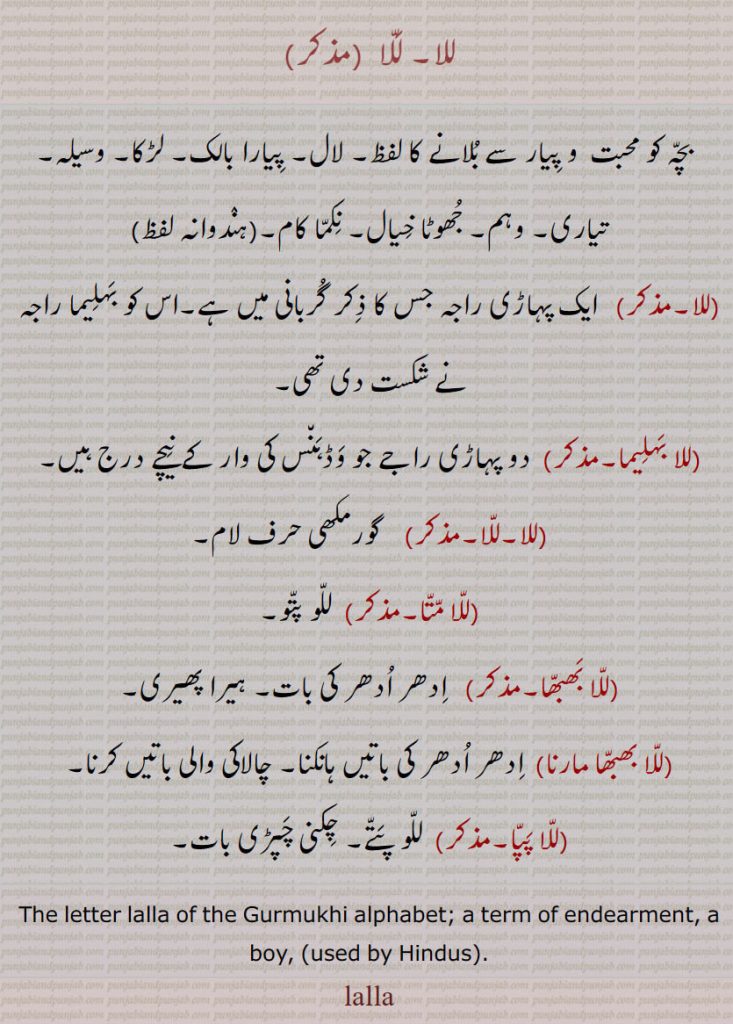 للا۔ للّا (مذکر)
بچّہ کو محبت و پِیار سے بُلانے کا لفظ۔ لال۔ پِیارا بالک۔ لڑکا۔ وسیلہ۔
تیاری۔ وہم۔ جُھوٹا خِیال۔ نِکمّا کام۔(ہنْدوانہ لفظ)
(للا۔مذکر) ایک پہاڑی راجہ جس کا ذِکر گُربانی میں ہے۔اس کو بَہلِیما راجہ
نے شکست دی تھی۔
(للا بَہلِیما۔مذکر) دو پہاڑی راجے جو وَڈہَنّس کی وار کے نِیچے درج ہیں۔
(للا۔للّا۔مذکر) گورمکھی حرف لام۔
(للّا مّتّا۔مذکر) للّو پتّو۔
(للّا بَھبھّا۔مذکر) اِدھر اُدھر کی بات۔ ہیرا پھیری۔
(للّا بھبھّا مارنا) اِدھر اُدھر کی باتیں ہانکنا۔ چالاکی والی باتیں کرنا۔
(للّا پَپّا۔مذکر) للّو پَتّے۔ چِکنی چَپڑی بات۔
The letter lalla of the Gurmukhi alphabet; a term of endearment, a
boy, (used by Hindus).
lalla